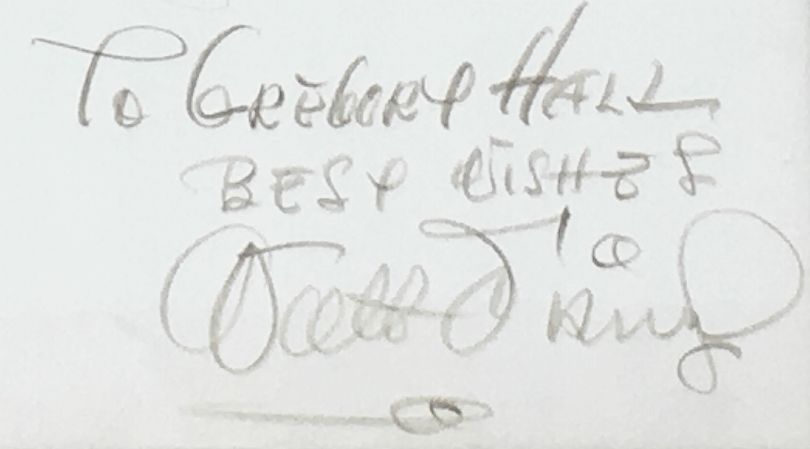 To GREGORY HALL
BEST WISHES
Walt Disney